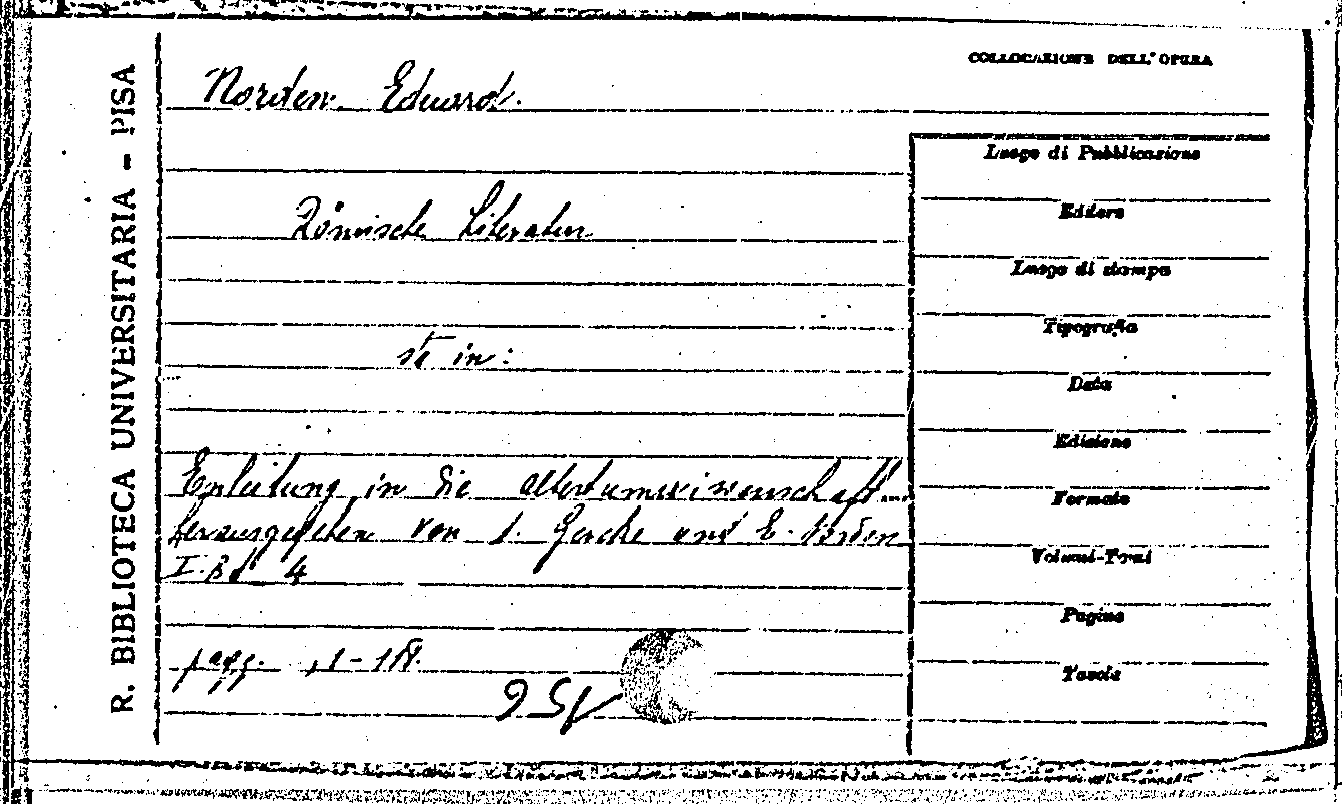 R. BIBLIOTECA UNIVERSITARIA - PISA
COLLOCAZIONE DELL'OPERA
Norden Eduard.
Luogo di Pubblicazione
Editore
Römische Literatur
Luogo di stampa
Tipografia
st in:
Data
Edizione
Einleitung in die Altertumswissenschaft...
Formato
herausgegeben von A. Gercke und E. Norden
Volumi-Tomi
I. Bd 4
Pagine
pagg. 1-118.
Tavole